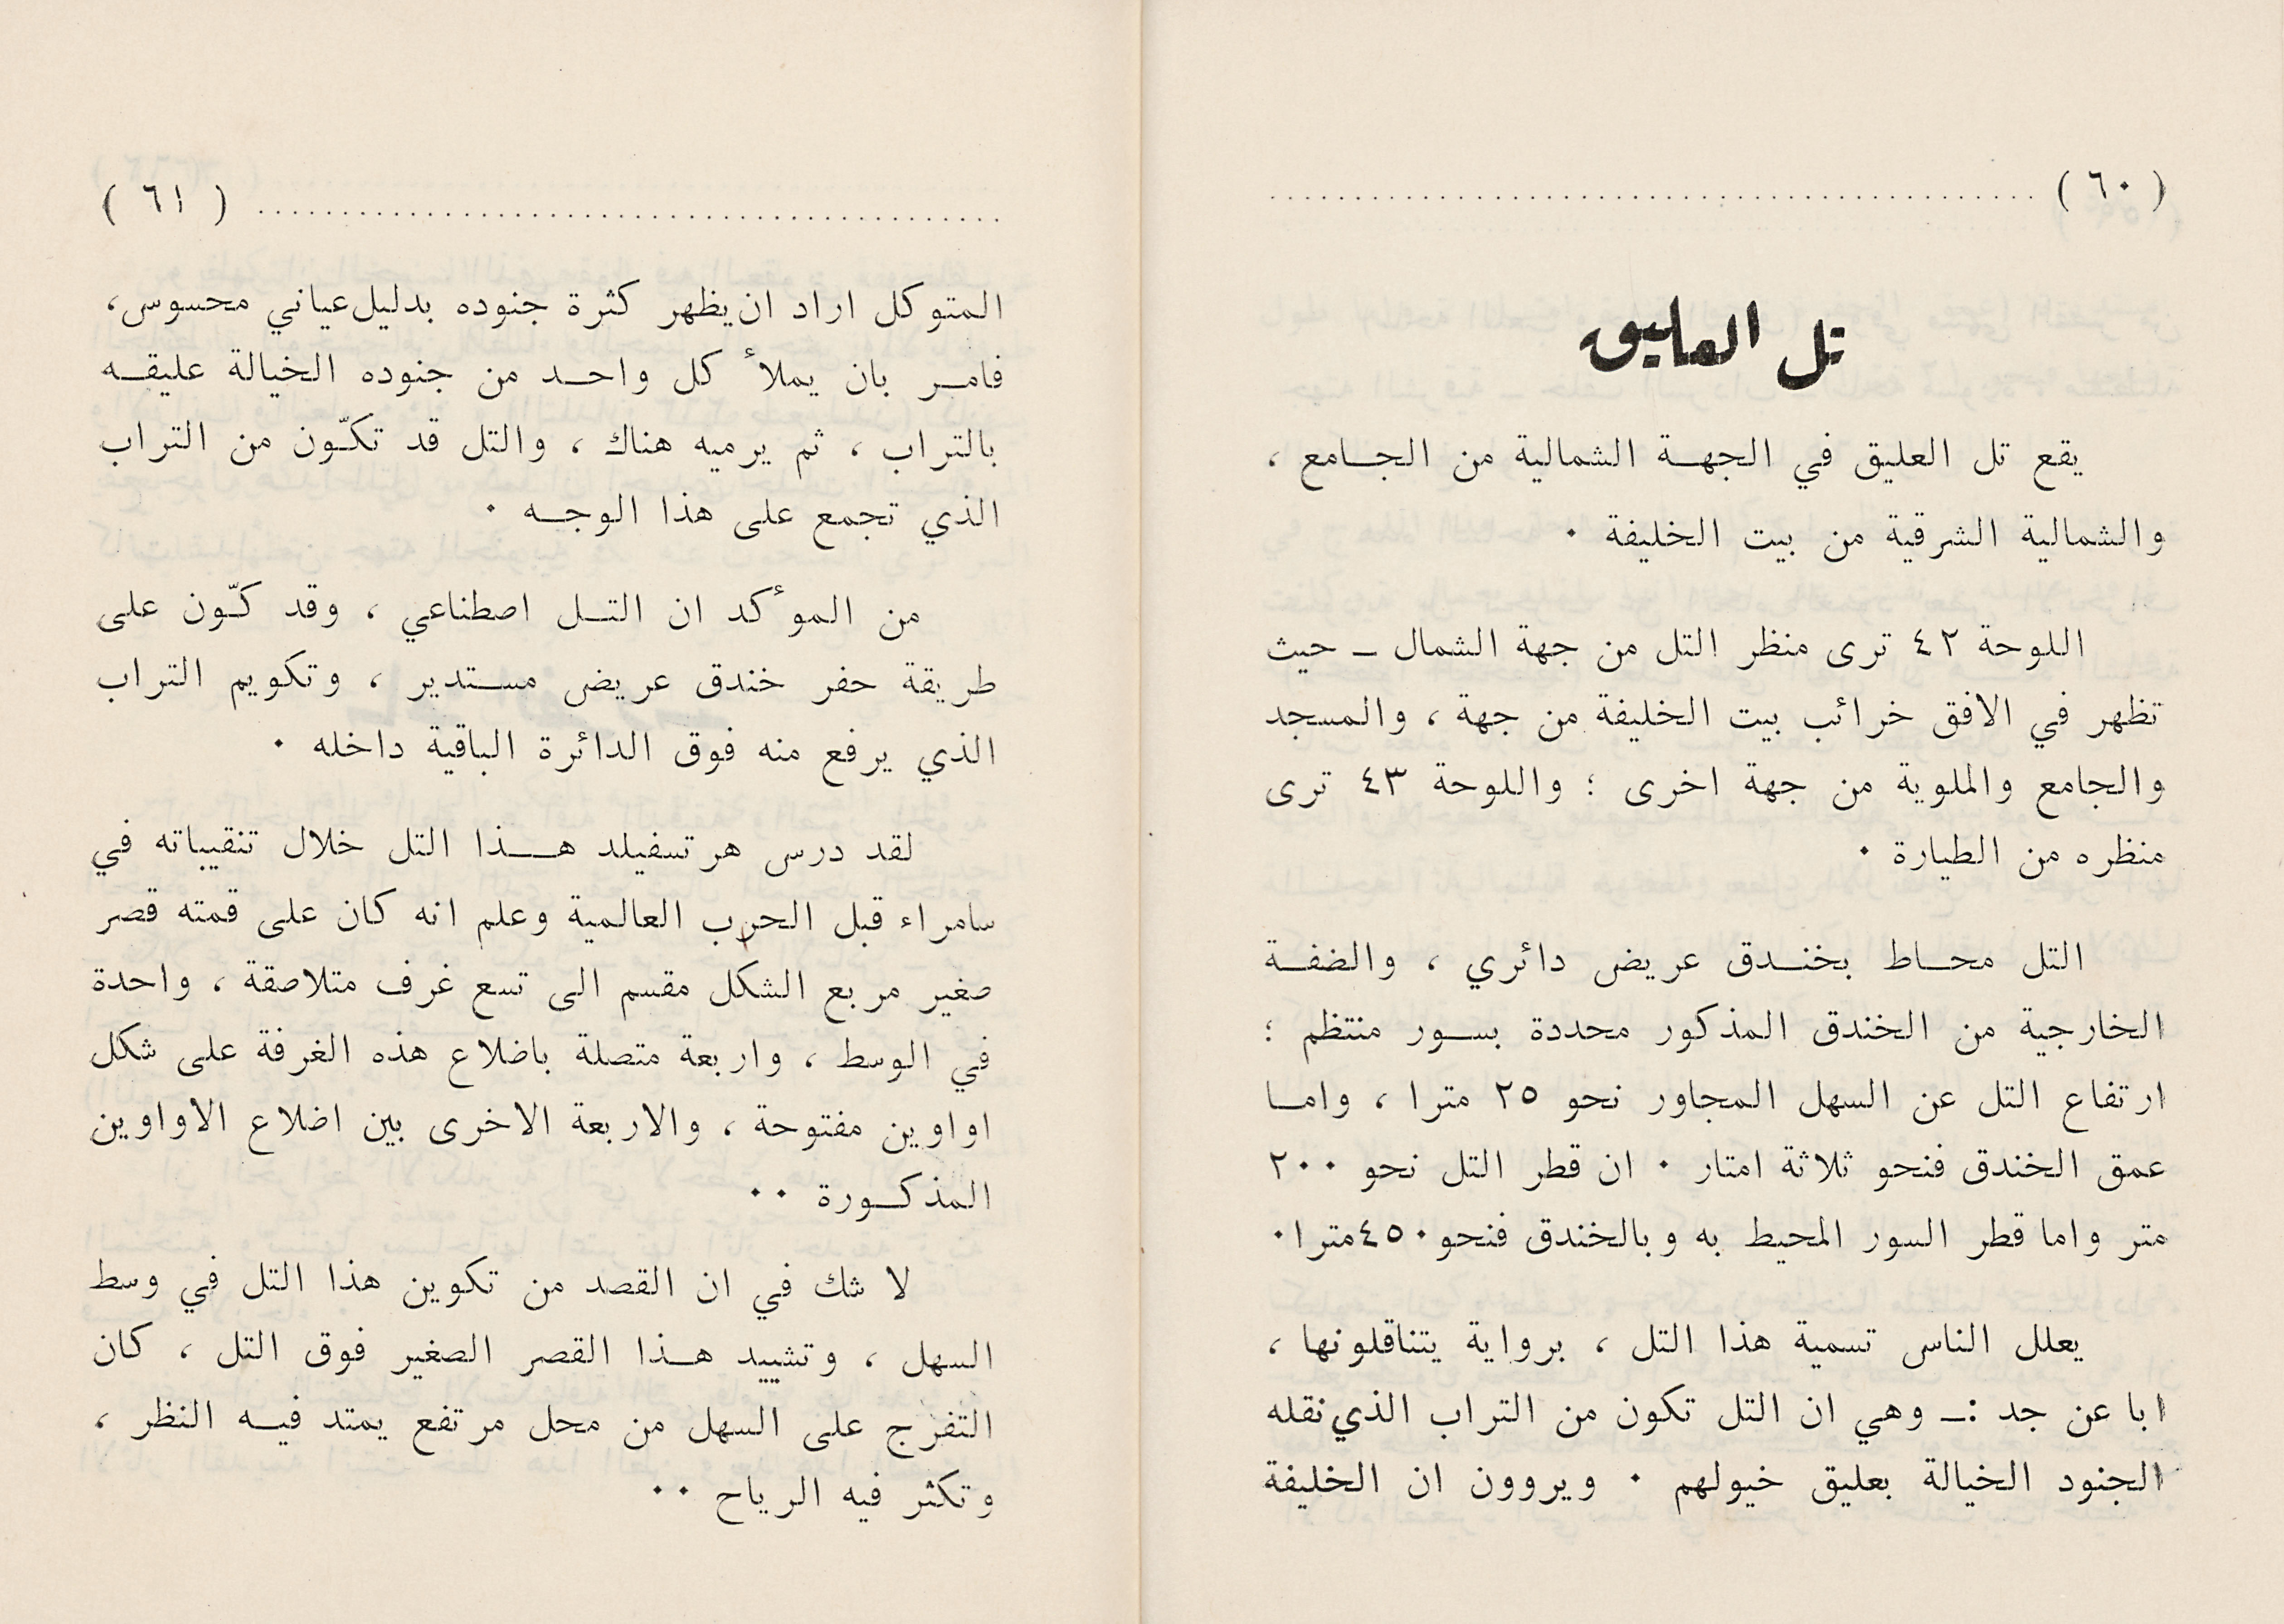 ( ٦٠ )
تل العليق
يقع تل العليق في الجهة الشمالية من الجامع ،
والشمالية الشرقية من بيت الخليفة ٠
اللوحة ٤٢ ترى منظر التل من جهة الشمال ـ حيث
تظهر في الافق خرائب بيت الخليفة من جهة ، والمسجد
والجامع والملوية من جهة اخرى ؛ واللوحة ٤٣ ترى
منظره من الطيارة ٠
التل محاط بخندق عريض دائري ، والضفة
الخارجية من الخندق المذكور محددة بسور منتظم ؛
ارتفاع التل عن السهل المجاور نحو ٢٥ مترا ، واما
عمق الخندق فنحو ثلاثة امتار ٠ ان قطر التل نحو ٢٠٠
متر واما قطر السور المحيط به وبالخندق فنحو ٤٥٠ مترا ٠
يعلل الناس تسمية هذا التل ، برواية يتناقلونها ،
ابا عن جد :ـ وهي ان التل تكون من التراب الذي نقله
الجنود الخيالة بعليق خيولهم ٠ ويروون ان الخليفة
( ٦١ )
المتوكل اراد ان يظهر كثرة جنوده بدليل عياني محسوس،
فامر بان يملأ كل واحد من جنوده الخيالة عليقه
بالتراب ، ثم يرميه هناك ، والتل قد تكوّن من التراب
الذي تجمع على هذا الوجه ٠
من المؤكد ان التل اصطناعي ، وقد كوّن على
طريقة حفر خندق عريض مستدير ، وتكويم التراب
الذي يرفع منه فوق الدائرة الباقية داخله ٠
لقد درس هرتسفيلد هذا التل خلال تنقيباته في
سامراء قبل الحرب العالمية وعلم انه كان على قمته قصر
صغير مربع الشكل مقسم الى تسع غرف متلاصقة ، واحدة
في الوسط ، واربعة متصلة باضلاع هذه الغرفة على شكل
اواوين مفتوحة ، والاربعة الاخرى بين اضلاع الاواوين
المذكورة ٠٠
لا شك في ان القصد من تكوين هذا التل في وسط
السهل ، وتشييد هذا القصر الصغير فوق التل ، كان
التفرج على السهل من محل مرتفع يمتد فيه النظر ،
وتكثر فيه الرياح ٠٠